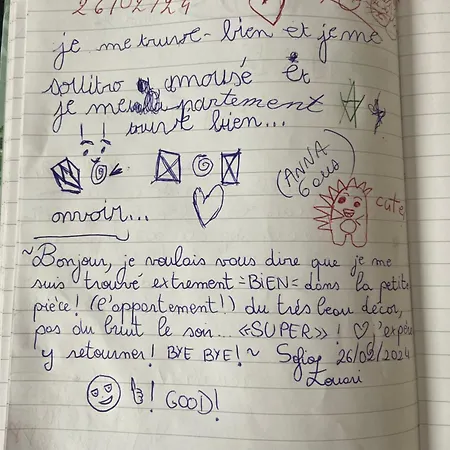 26/02/24
je me truve bien et je me
amousé Et
je me partement
bien...
(ANNA
6 ans)
cute
onvoir...
~Bonjour, je voulais vous dire que je me
suis trouvé extrement =BiEN= dans la petite
pièce! (l'appartement!) du trés beau décor,
pas du bruit le son... «SUPER»! ♡ j'espère
y retourner! BYE BYE! ~ Sofia 26/02/2024
Zouari
GOOD!